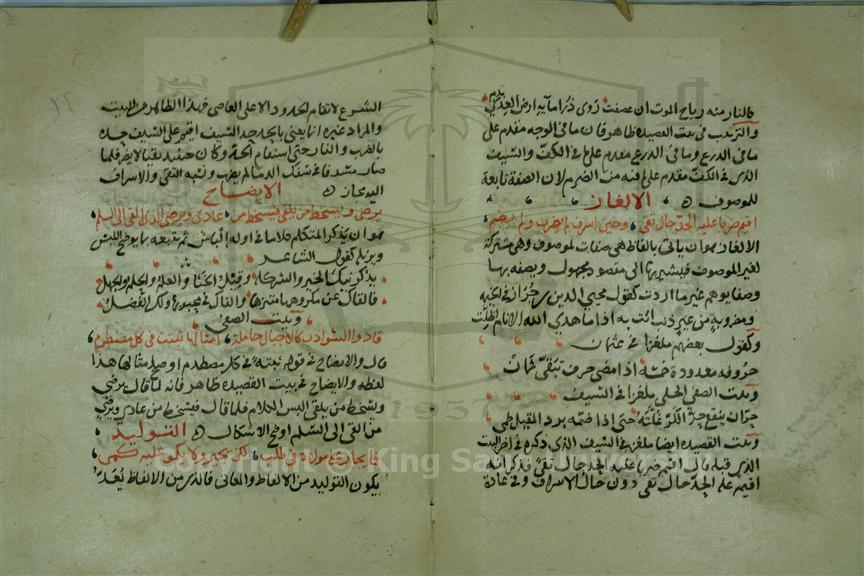 كالنار منه رياح الموت ان عصفت روى ذرا مآبه ارض العدى بدم
والترتيب في بيت القصيده ظاهر فان ما في الوجه مقدم على
ما في الدرع وما في الدرع مقدم على ما في الكف والسيف
الذي في الكف مقدم على ما فيه من الضرم لان الصفة تابعة
للموصوف الالغاز
اقيم ضربا عليه الحد حال تقى وحين اسرف بالضرب ولم يضم
الالغاز هو ان ياتي بالفاظ هي صفات لموصوف وهي مشتركة
لغير الموصوف فيشير بها الى مقصود مجهول ويصفه بها
وصفا يوهم غير ما اردت كقول محيي الدين في الخيمه
ومضروبة من غير ذنب اتت به اذا ما هدى الله الانام اظلت
وكقول بعضهم ملغزا في عثمان
حروفه معدودة خمسة اذا مضى حرف تبقى ثمان
وبيت الصفي الحلي ملغزا في السيف
حران ينقع حر الكر غلته حتى اذا ضمه برد المقيل ظمي
وبيت القصيده ايضا ملغز في السيف الذي ذكره في اخر البيت
الذي قبله قال اقيم ضربا عليه الحد حال تقى فذكر انه
اقيم عليه الحد حال تقى دون حال الاسراف وفي عادة
الشرع لا تقام الحدود الا على العاصي فهذا الظاهر من البيت
والمراد غيره انما يعني بالحد حد السيف اقيم على السيف حده
بالضرب والنار حتى استقام الحد وكان حينئذ نقيا لا يضر فلما
صار مسرفا في سفك الدما لم يضرب ونسبة التقى والاسراف
اليه مجاز الايضاح
يرضى ويسخط من يلقى فيسخط من عادى ويرضى الذي القى الى السلم
هو ان يذكر المتكلم كلاما في اوله الباس ثم يتبعه بما يوضح اللبس
ويزيله كقول الشاعر
يذكرنيك الخير والشر كله وقيل الخنا والعلم والحلم والجهل
فالقاك عن مكروهها متنزها والقاك في محبوبها ولك الفضل
وبيت الصفي
قادوا الشوازب كالاجبال حاملة امثالها ثبتت في كل مصطدم
قال والايضاح في قوله ثبتة في كل مصطدم اوصل مثالها هذا
لفظه والايضاح في بيت القصيده ظاهر فانه لما قال يرضى
ويسخط من يلقى البس الكلام فلما قال فيسخط من عادى ويرضى
من القى الى السلم اوضح الاشكال التوليد
يكون التوليد من الالفاظ والمعاني فالذي من الالفاظ يعد